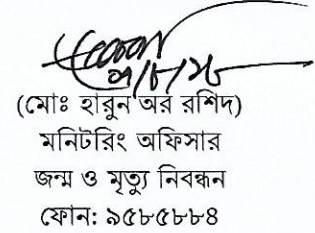 (মোঃ হারুন অর রশিদ)
মনিটরিং অফিসার
জন্ম ও মৃত্যু নিবন্ধন
ফোন: ৯৫৮৫৮৮৪